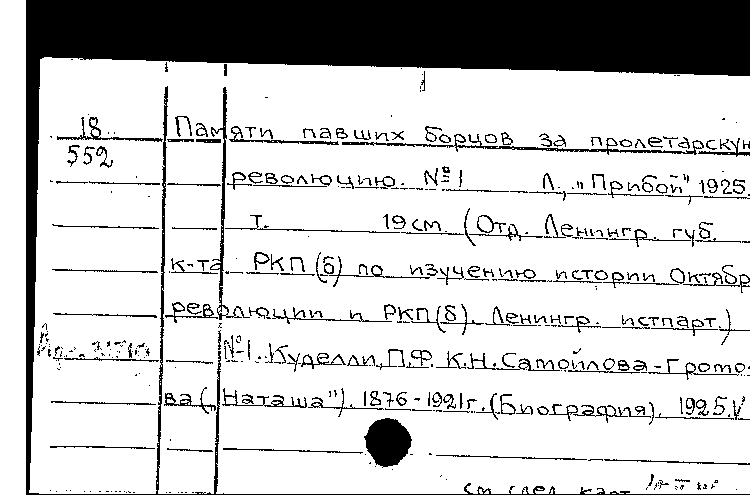 18 Памяти павших борцов за пролетарскую
552
революцию. №1 Л., "Прибой", 1925.
т. 19 см. (Отд. Ленингр. губ.
к-та РКП(б) по изучению истории Октябр
революции и РКП(б). Ленингр. истпарт.)
№1. Куделли, П.Ф. К.Н. Самойлова-Громо-
ва („Наташа"). 1876-1921г. (Биография). 1925. V
см. след. карт.